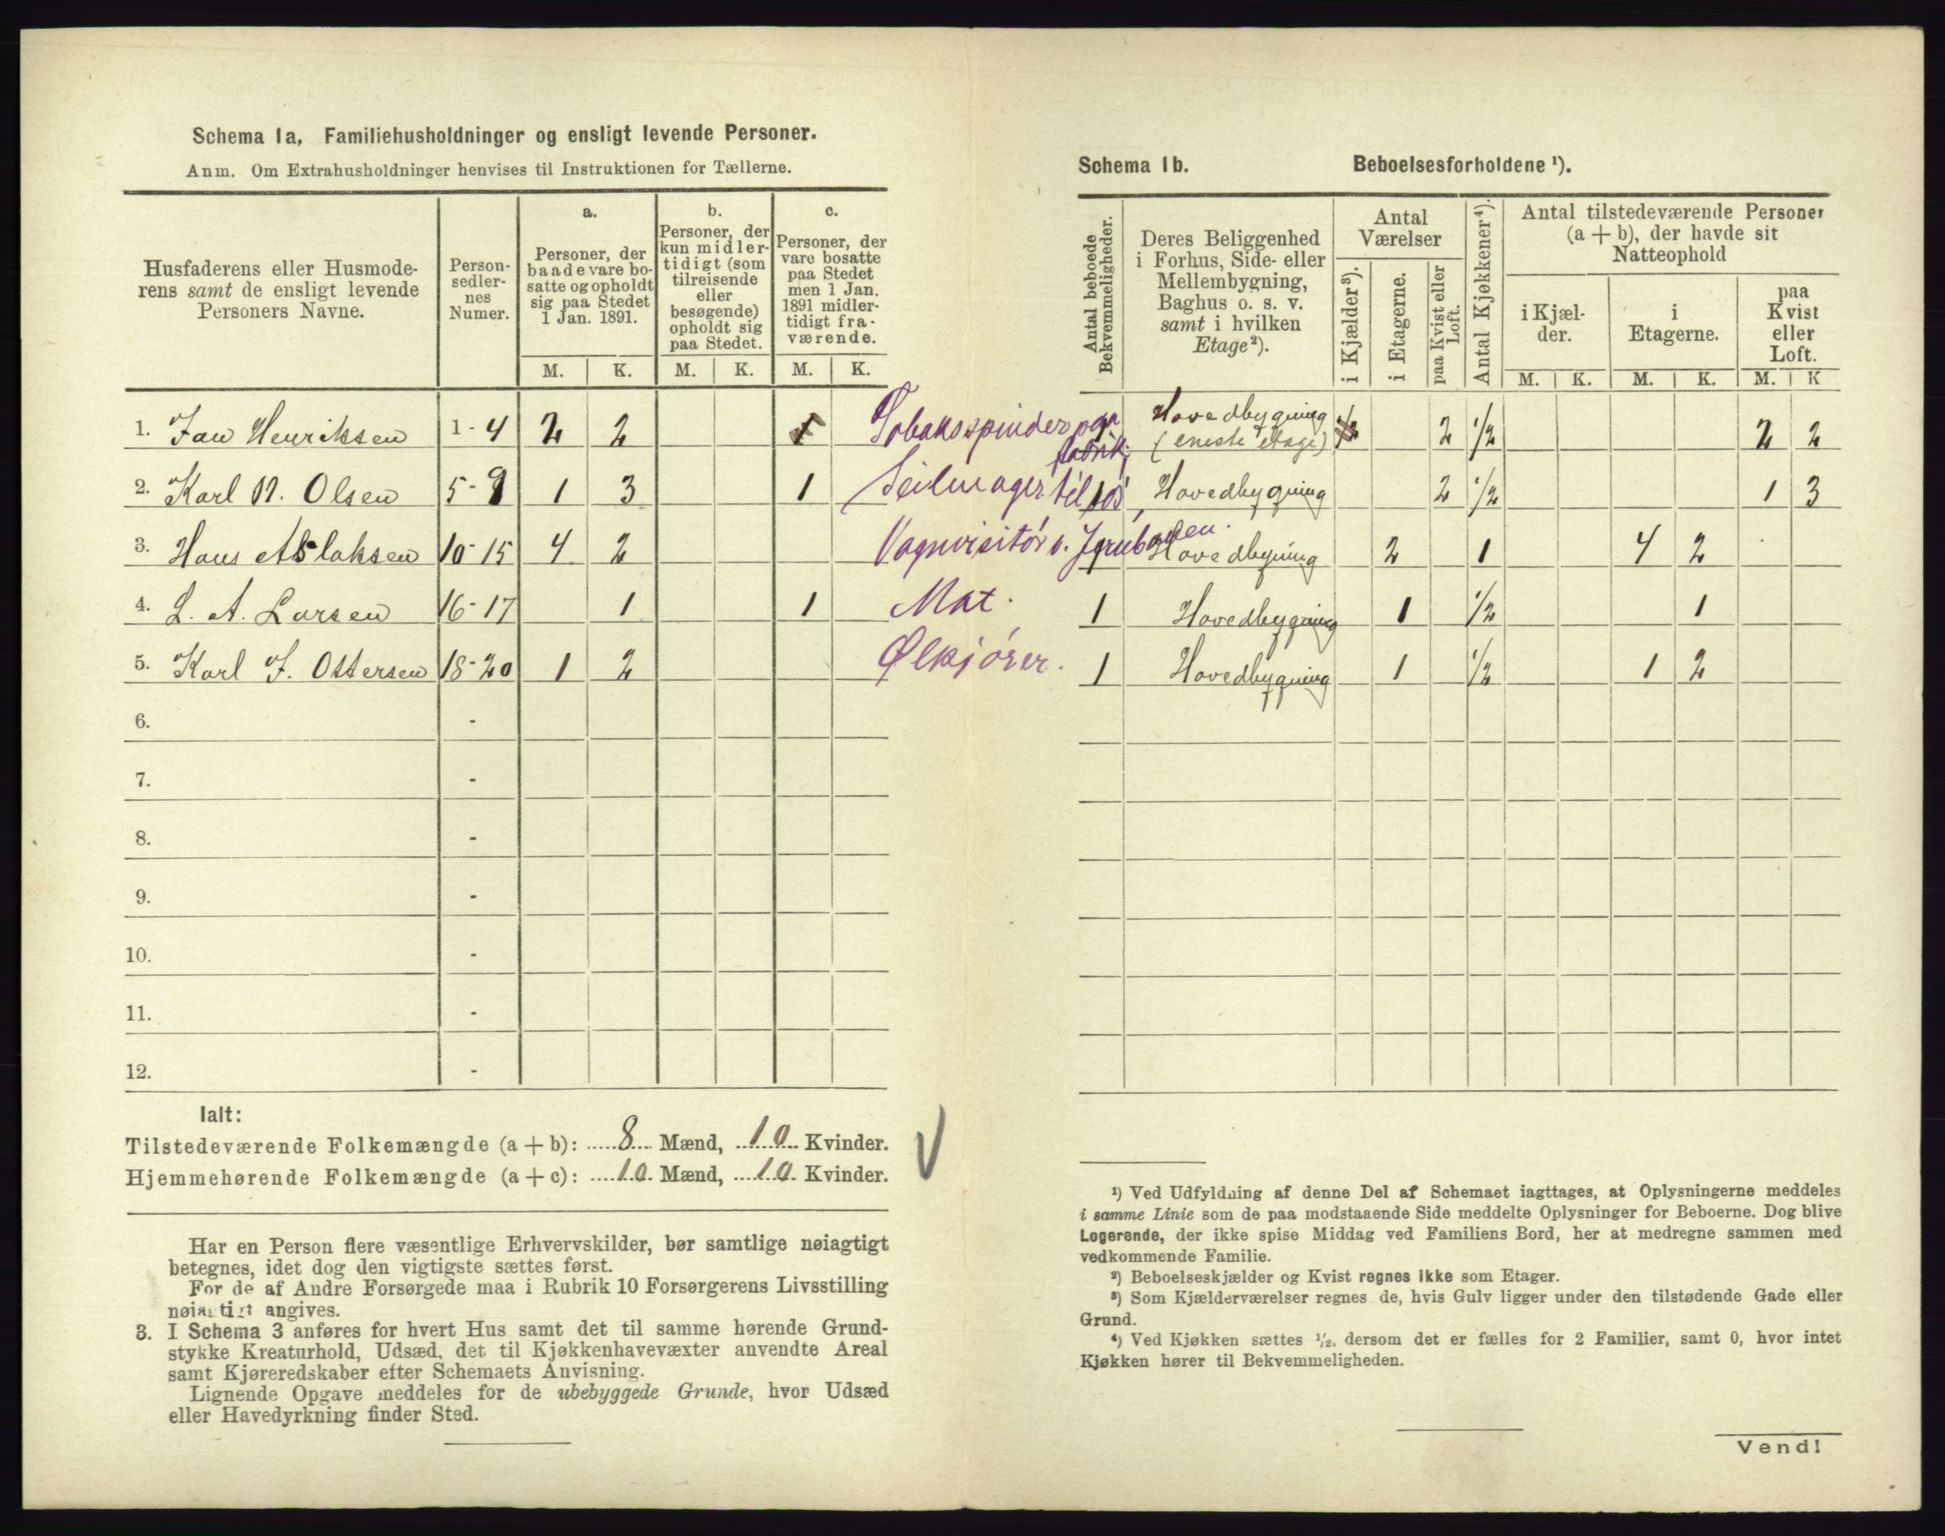 Schema 1a, Familiehusholdninger og ensligt levende Personer.
Anm. Om Extrahusholdninger henvises til Instruktionen for Tællerne.
Husfaderens eller Husmode-
rens samt de ensligt levende
Personers Navne.
Person-
sedler-
nes
Numer.
a.
Personer, der
baade vare bo-
satte og opholdt
sig paa Stedet
1 Jan. 1891.
b.
Personer, der
kun midler-
tidigt (som
tilreisende
eller
besøgende)
opholdt sig
paa Stedet.
c.
Personer, der
vare bosatte
paa Stedet
men 1 Jan.
1891 midler-
tidigt fra-
værende.
M. K. M. K. M. K.
1. Jan Henriksen 1 - 4 2 2 1 Tobaksspinder paa fabrik.
2. Karl N. Olsen 5 - 9 1 3 1 Seilmager tilsøs,
3. Hans Aslaksen 10 - 15 4 2 Vognvisitør v. Jernbanen.
4. L. A. Larsen 16 - 17 1 1 Mat.
5. Karl J. Ottersen 18 - 20 1 2 Ølkjører.
6. -
7. -
8. -
9. -
10. -
11. -
12. -
Ialt:
Tilstedeværende Folkemængde (a + b): 8 Mænd, 10 Kvinder.
Hjemmehørende Folkemængde (a + c): 10 Mænd, 10 Kvinder.
Har en Person flere væsentlige Erhvervskilder, bør samtlige nøiagtigt
betegnes, idet dog den vigtigste sættes først.
For de af Andre Forsørgede maa i Rubrik 10 Forsørgerens Livsstilling
nøiagtigt angives.
3. I Schema 3 anføres for hvert Hus samt det til samme hørende Grund-
stykke Kreaturhold, Udsæd, det til Kjøkkenhavevæxter anvendte Areal
samt Kjøreredskaber efter Schemaets Anvisning.
Lignende Opgave meddeles for de ubebyggede Grunde, hvor Udsæd
eller Havedyrkning finder Sted.
Schema 1b. Beboelsesforholdene ¹).
Antal beboede
Bekvemmeligheder.
Deres Beliggenhed
i Forhus, Side- eller
Mellembygning,
Baghus o. s. v.
samt i hvilken
Etage²).
Antal
Værelser
i Kjælder³).
i Etagerne.
paa Kvist eller
Loft.
Antal Kjøkkener⁴).
Antal tilstedeværende Personer
(a + b), der havde sit
Natteophold
i Kjæl-
der.
i
Etagerne.
paa
Kvist
eller
Loft.
M. K. M. K. M. K
1 Hovedbygning
(eneste etage) 2 1/2 2 2
1 Hovedbygning 2 1/2 1 3
1 Hovedbygning 2 1 4 2
1 Hovedbygning 1 1/2 1
1 Hovedbygning 1 1/2 1 2
¹) Ved Udfyldning af denne Del af Schemaet iagttages, at Oplysningerne meddeles
i samme Linie som de paa modstaaende Side meddelte Oplysninger for Beboerne. Dog blive
Logerende, der ikke spise Middag ved Familiens Bord, her at medregne sammen med
vedkommende Familie.
²) Beboelseskjælder og Kvist regnes ikke som Etager.
³) Som Kjælderværelser regnes de, hvis Gulv ligger under den tilstødende Gade eller
Grund.
⁴) Ved Kjøkken sættes 1/2, dersom det er fælles for 2 Familier, samt 0, hvor intet
Kjøkken hører til Bekvemmeligheden.
Vend!